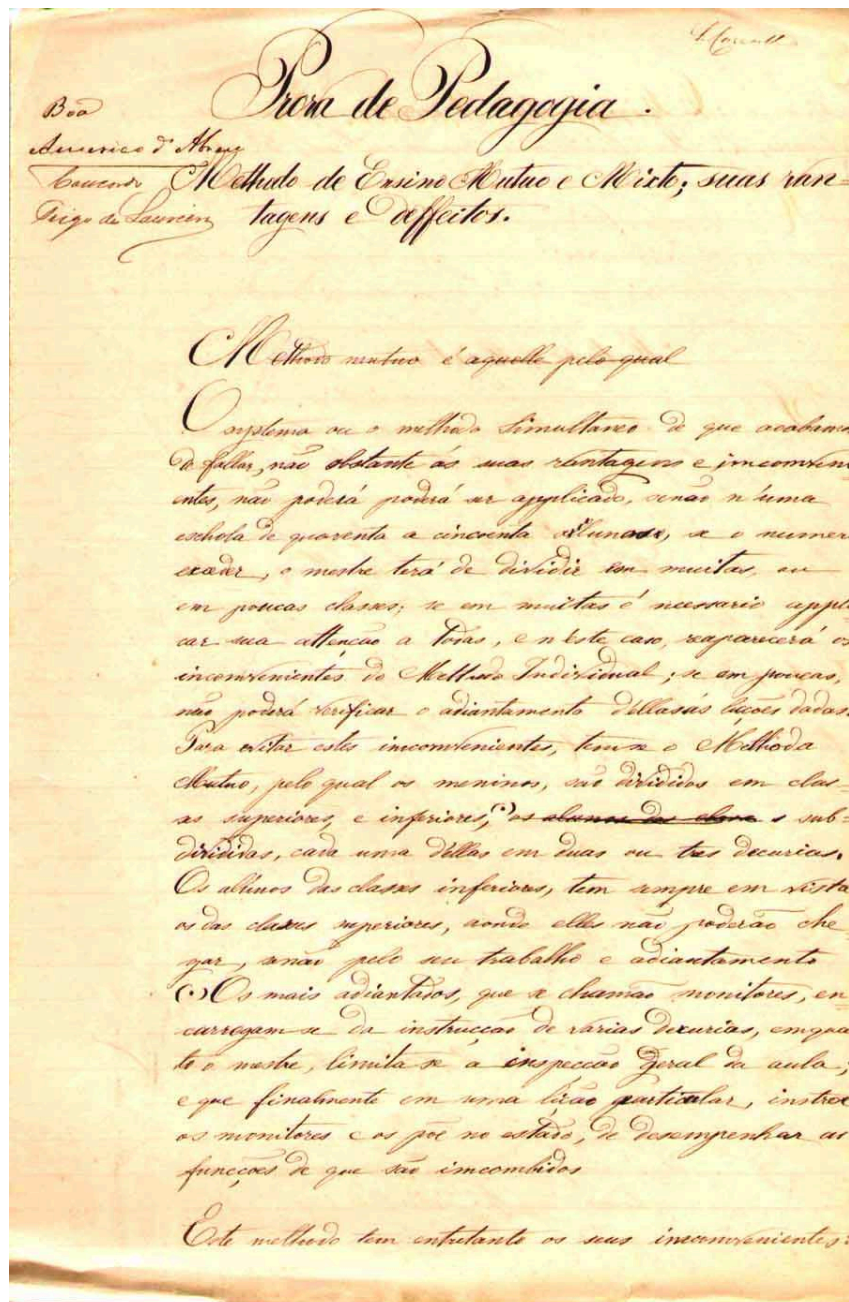 Prova de Pedagogia.
Boa
Americo d'Abreu
Trigo de Loureiro
Methodo de Ensino Mutuo e Mixto; suas van=
tagens e deffeitos.
Methodo mutuo é aquelle pelo qual
O systema ou o methodo Simultaneo de que acabamo
de fallar, não obstante ás suas vantagens e imconveni
entes, não poderá poderá ser applicado, senão n'uma
eschola de quarenta a cincoenta alunos, se o numer
exceder, o mestre terá de dividir em muitas, ou
em poucas classes; se em muitas é necessario appli
car sua attenção a todas, e n'este caso, reaparecerá os
inconvenientes do Methodo Individual; se em poucas,
não poderá verificar o adiantamento d'ellas ás lições dadas.
Para evitar estes imconvenientes, tem-se o Methodo
Mutuo, pelo qual os meninos, são divididos em clas-
ses superiores, e inferiores, (•) os alunos das classes e sub=
divididas, cada uma d'ellas em duas ou tres decurias.
Os alunos das classes inferiores, tem sempre em vista
os das classes superiores, aonde elles não poderão che
gar, senão pelo seu trabalho e adiantamento
(•) Os mais adiantados, que se chamão monitores, en
carregam-se da instrucção de varias decurias, emqua
to o mestre, limita-se a inspecção geral da aula;
e que finalmente em uma lição particular, instroe
os monitores e os põe no estado, de desempenhar as
funcções de que são imcombidos
Este methodo tem entretanto os seus imconvenientes: